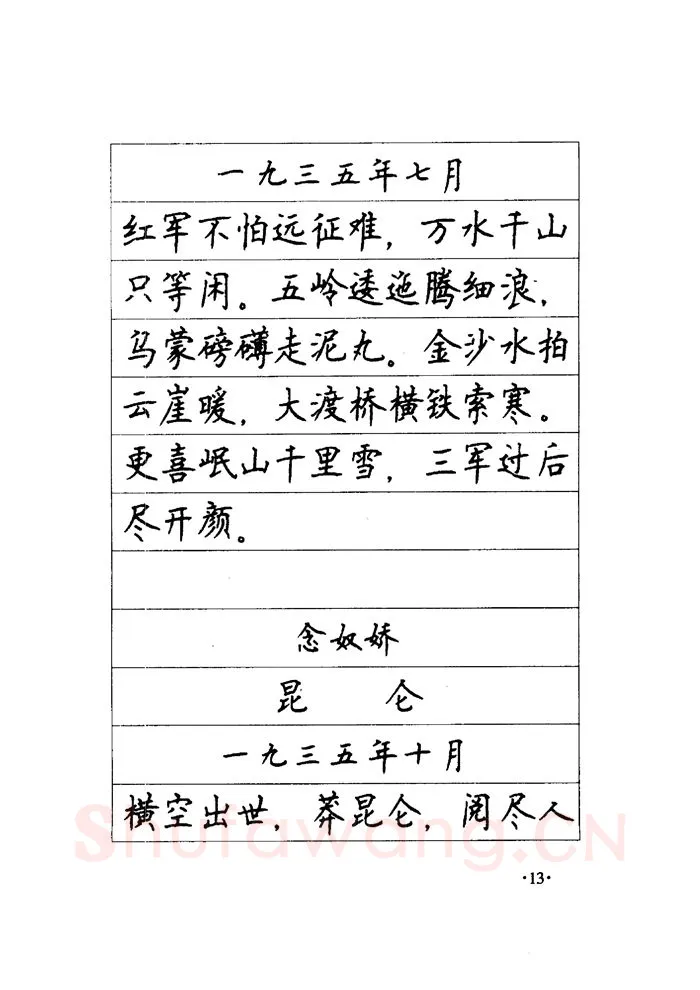 一九三五年七月
红军不怕远征难，万水千山
只等闲。五岭逶迤腾细浪，
乌蒙磅礴走泥丸。金沙水拍
云崖暖，大渡桥横铁索寒。
更喜岷山千里雪，三军过后
尽开颜。
念奴娇
昆 仑
一九三五年十月
横空出世，莽昆仑，阅尽人
Shufawang.CN
·13·